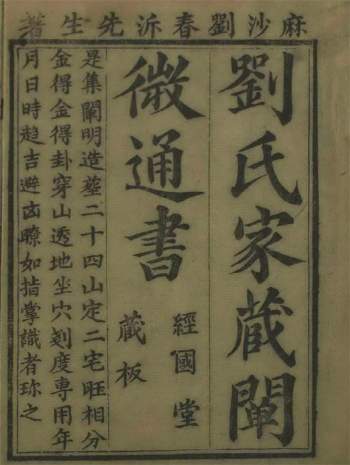 麻沙劉春泝先生著
劉氏家藏闡
微通書
經國堂
藏板
是集闡明造塟二十四山定二宅旺相分
金得金得卦穿山透地坐穴剋度專用年
月日時趋吉避凶瞭如指掌識者珎之